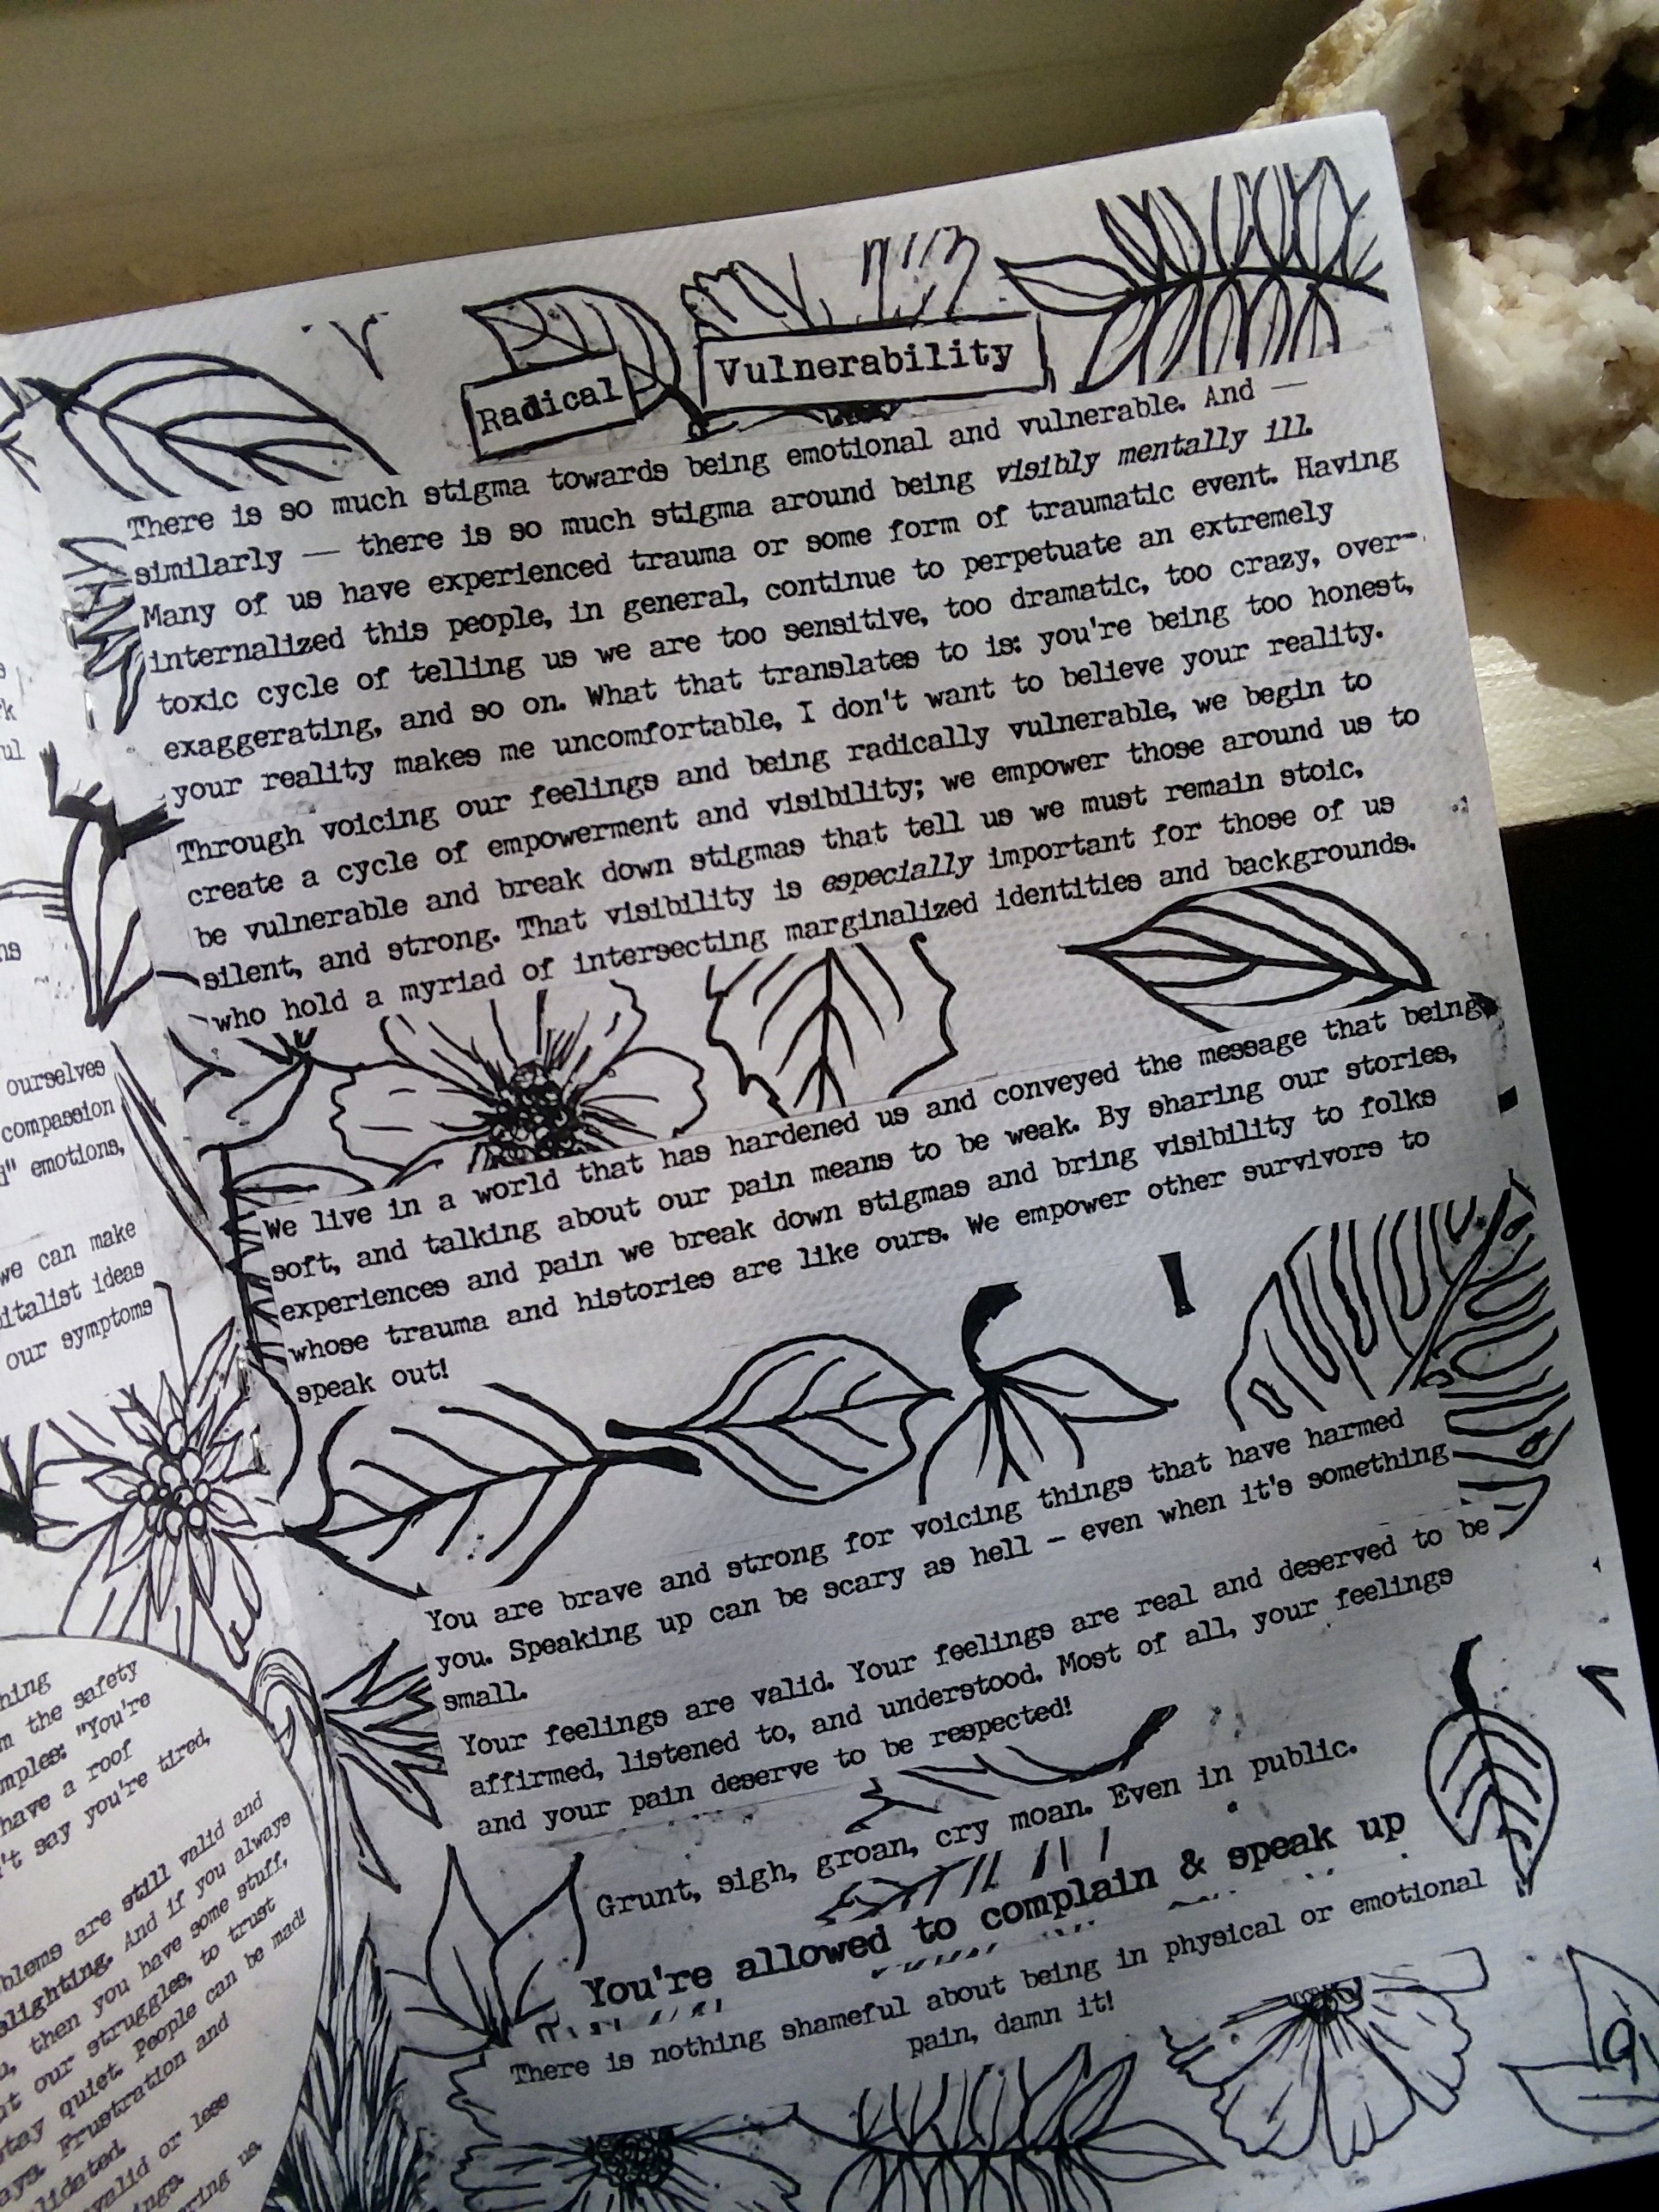 ourselves
compassion
emotions,
we can make
italist ideas
our symptoms
hing
m the safety
mples: "You're
have a roof
't say you're tired,
blems are still valid and
lighting. And if you always
then you have some stuff,
our struggles, to trust
stay quiet. People can be mad!
Frustration and
lidated.
valid or less
ring us.
Radical Vulnerability
There is so much stigma towards being emotional and vulnerable. And —
similarly — there is so much stigma around being visibly mentally ill.
Many of us have experienced trauma or some form of traumatic event. Having
internalized this people, in general, continue to perpetuate an extremely
toxic cycle of telling us we are too sensitive, too dramatic, too crazy, over-
exaggerating, and so on. What that translates to is: you're being too honest,
your reality makes me uncomfortable, I don't want to believe your reality.
Through voicing our feelings and being radically vulnerable, we begin to
create a cycle of empowerment and visibility; we empower those around us to
be vulnerable and break down stigmas that tell us we must remain stoic,
silent, and strong. That visibility is especially important for those of us
who hold a myriad of intersecting marginalized identities and backgrounds.
We live in a world that has hardened us and conveyed the message that being
soft, and talking about our pain means to be weak. By sharing our stories,
experiences and pain we break down stigmas and bring visibility to folks
whose trauma and histories are like ours. We empower other survivors to
speak out!
You are brave and strong for voicing things that have harmed
you. Speaking up can be scary as hell - even when it's something
small.
Your feelings are valid. Your feelings are real and deserved to be
affirmed, listened to, and understood. Most of all, your feelings
and your pain deserve to be respected!
Grunt, sigh, groan, cry moan. Even in public.
You're allowed to complain & speak up
There is nothing shameful about being in physical or emotional
pain, damn it!
9